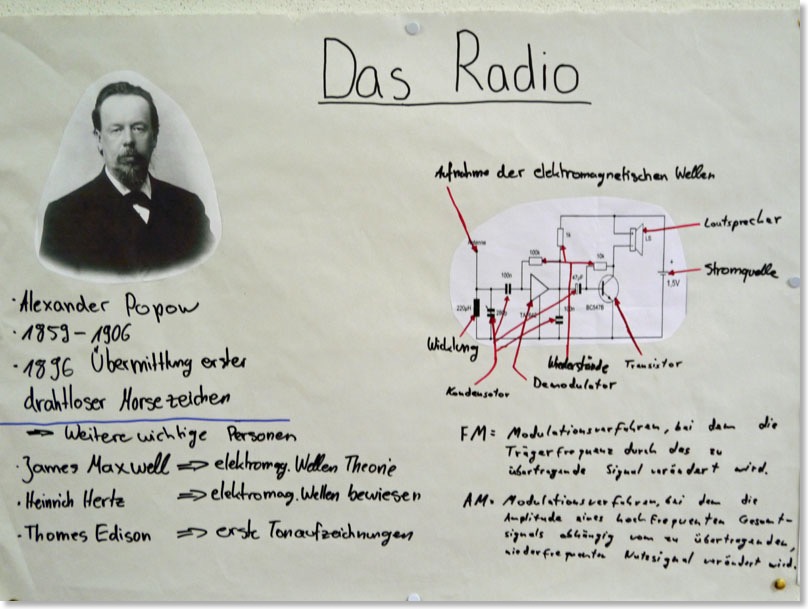 Das Radio
· Alexander Popow
· 1859-1906
· 1896 Übermittlung erster
drahtloser Morsezeichen
⇒ Weitere wichtige Personen
· James Maxwell ⇒ elektromag. Wellen Theorie
· Heinrich Hertz ⇒ elektromag. Wellen bewiesen
· Thomes Edison ⇒ erste Tonaufzeichnungen
Aufnahme der elektromagnetischen Wellen
Lautsprecher
Stromquelle
Antenne
1k
LS
100k
10k
100n
47µF
+
1,5V
220µH
BC547B
100n
Wicklung
Kondensator
Demodulator
Wiederstände
Transistor
FM= Modulationsverfahren, bei dem die
Trägerfrequenz durch das zu
übertragende Signal verändert wird.
AM= Modulationsverfahren, bei dem die
Amplitude eines hochfrequenten Gesamt-
signals abhängig vom zu übertragenden,
niederfrequenten Nutzsignal verändert wird.